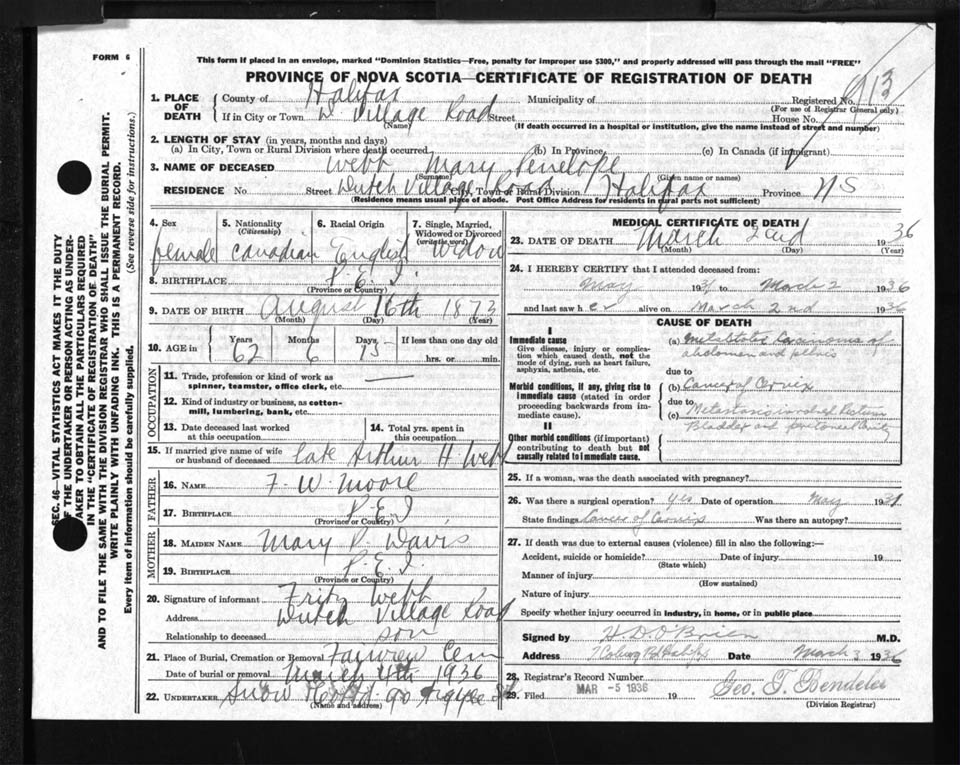 FORM 6
This form if placed in an envelope, marked "Dominion Statistics—Free, penalty for improper use $300," and properly addressed will pass through the mail "FREE"
PROVINCE OF NOVA SCOTIA—CERTIFICATE OF REGISTRATION OF DEATH
SEC. 46—VITAL STATISTICS ACT MAKES IT THE DUTY
OF THE UNDERTAKER OR PERSON ACTING AS UNDER-
TAKER TO OBTAIN ALL THE PARTICULARS REQUIRED
IN THE "CERTIFICATE OF REGISTRATION OF DEATH"
AND TO FILE THE SAME WITH THE DIVISION REGISTRAR WHO SHALL ISSUE THE BURIAL PERMIT.
WRITE PLAINLY WITH UNFADING INK. THIS IS A PERMANENT RECORD.
Every item of information should be carefully supplied. (See reverse side for instructions.)
1. PLACE OF DEATH County of Halifax Municipality of Registered No. 913
(For use of Registrar General only)
If in City or Town D. Village Road Street House No.
(Name) (If death occurred in a hospital or institution, give the name instead of street and number)
2. LENGTH OF STAY (in years, months and days)
(a) In City, Town or Rural Division where death occurred (b) In Province (c) In Canada (if immigrant)
3. NAME OF DECEASED Webb Mary Penelope
(Surname) (Given name or names)
RESIDENCE No Street Dutch Village Road City, Town or Rural Division Halifax Province NS
(Residence means usual place of abode. Post Office Address for residents in rural parts not sufficient)
4. Sex 5. Nationality (Citizenship) 6. Racial Origin 7. Single, Married, Widowed or Divorced (write the word)
female Canadian English Widow
8. BIRTHPLACE P.E.I.
(Province or Country)
9. DATE OF BIRTH August 16th 1873
(Month) (Day) (Year)
10. AGE in Years Months Days If less than one day old
62 6 15 hrs. or min.
OCCUPATION
11. Trade, profession or kind of work as spinner, teamster, office clerk, etc. —
12. Kind of industry or business, as cotton-mill, lumbering, bank, etc.
13. Date deceased last worked at this occupation 14. Total yrs. spent in this occupation
15. If married give name of wife or husband of deceased late Arthur H Webb
FATHER
16. NAME F. W. Moore
17. BIRTHPLACE P.E.I.
(Province or Country)
MOTHER
18. MAIDEN NAME Mary P. Davis
19. BIRTHPLACE P.E.I.
(Province or Country)
20. Signature of informant Fritz Webb
Address Dutch Village Road
Relationship to deceased son
21. Place of Burial, Cremation or Removal Fairview Cem
Date of burial or removal March 4th 1936
22. UNDERTAKER Snow 90 Argyle St
(Name and address)
MEDICAL CERTIFICATE OF DEATH
23. DATE OF DEATH March 2nd 1936
(Month) (Day) (Year)
24. I HEREBY CERTIFY that I attended deceased from:
May 1931 to March 2 1936
and last saw h er alive on March 2nd 1936
CAUSE OF DEATH
I
Immediate cause
Give disease, injury or complication which caused death, not the mode of dying, such as heart failure, asphyxia, asthenia, etc.
(a) Carcinoma of
abdomen and pelvis
due to
Morbid conditions, if any, giving rise to immediate cause (stated in order proceeding backwards from immediate cause).
(b) Cancer of Cervix
due to
(c) Metastasis involved Rectum
Bladder and peritoneal cavity
II
Other morbid conditions (if important) contributing to death but not causally related to immediate cause.
25. If a woman, was the death associated with pregnancy?
26. Was there a surgical operation? yes Date of operation May 1931
State findings Cancer of Cervix Was there an autopsy?
27. If death was due to external causes (violence) fill in also the following:—
Accident, suicide or homicide? Date of injury 19
(State which)
Manner of injury
(How sustained)
Nature of injury
Specify whether injury occurred in industry, in home, or in public place
Signed by H D O'Brien M.D.
Address Date March 3 1936
28. Registrar's Record Number
29. Filed MAR -5 1936 19 Geo. T. Bendeler
(Division Registrar)